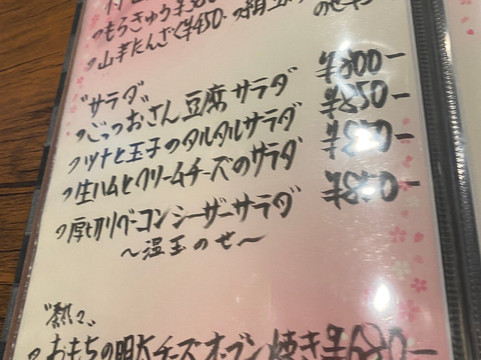 もろきゅう
山芋たんざく ¥450-
"サラダ"
ごっつおさん豆腐サラダ ¥800-
ツナと玉子のタルタルサラダ ¥850-
生ハムとクリームチーズのサラダ
厚切りベーコンシーザーサラダ ¥880-
〜温玉のせ〜
"熱々"
おもちの明太チーズオーブン焼き ¥680-